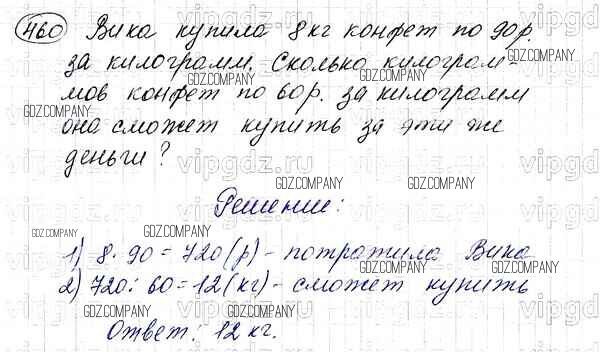 460 Вика купила 8 кг конфет по 90 р.
за килограмм. Сколько килограм-
мов конфет по 60 р. за килограмм
она сможет купить за эти же
деньги?
Решение:
1) 8 · 90 = 720 (р) - потратила Вика
2) 720 : 60 = 12 (кг) - сможет купить
Ответ: 12 кг.